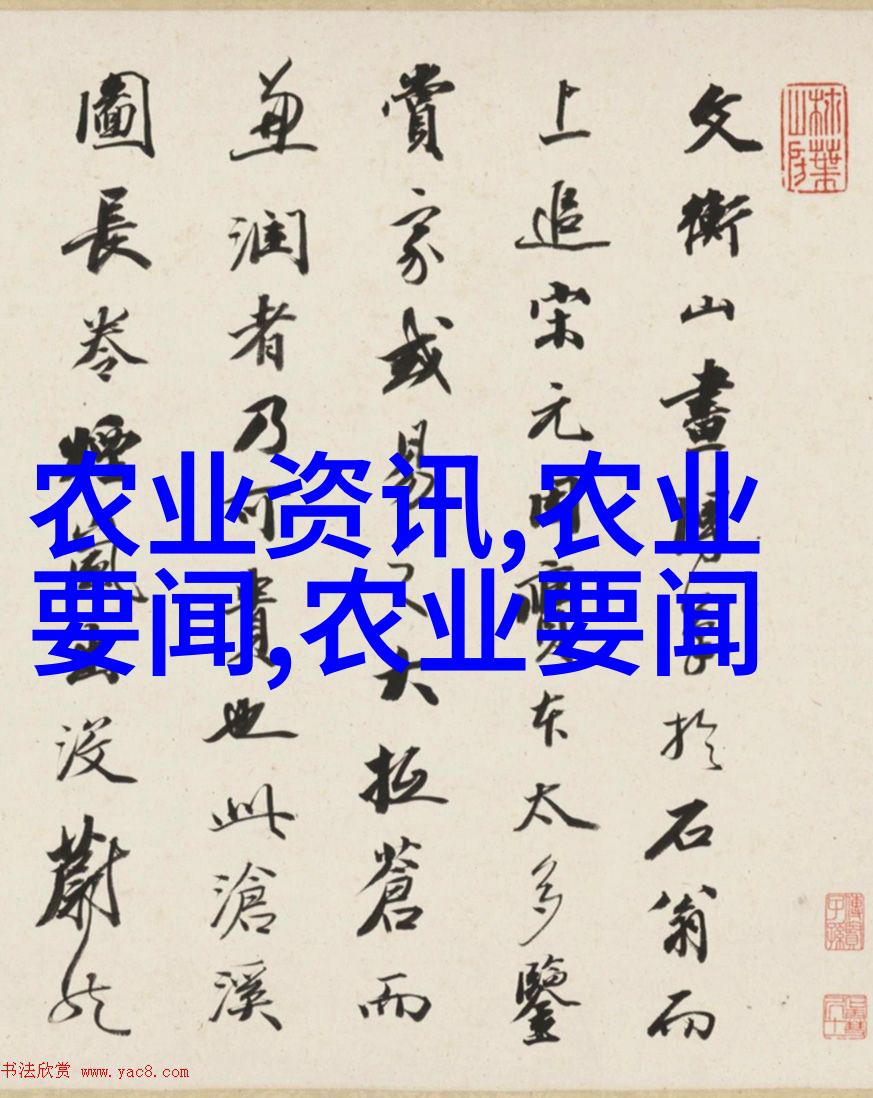 文衡山畫於石翁而
上追宋元用本太多鑒
賞家或易大拙蒼而
兼潤者乃可貴也此滄溪
圖長卷煙嵐出沒蔚然
农业资讯,农业
要闻,农业要闻
书法欣赏 www.yac8.com